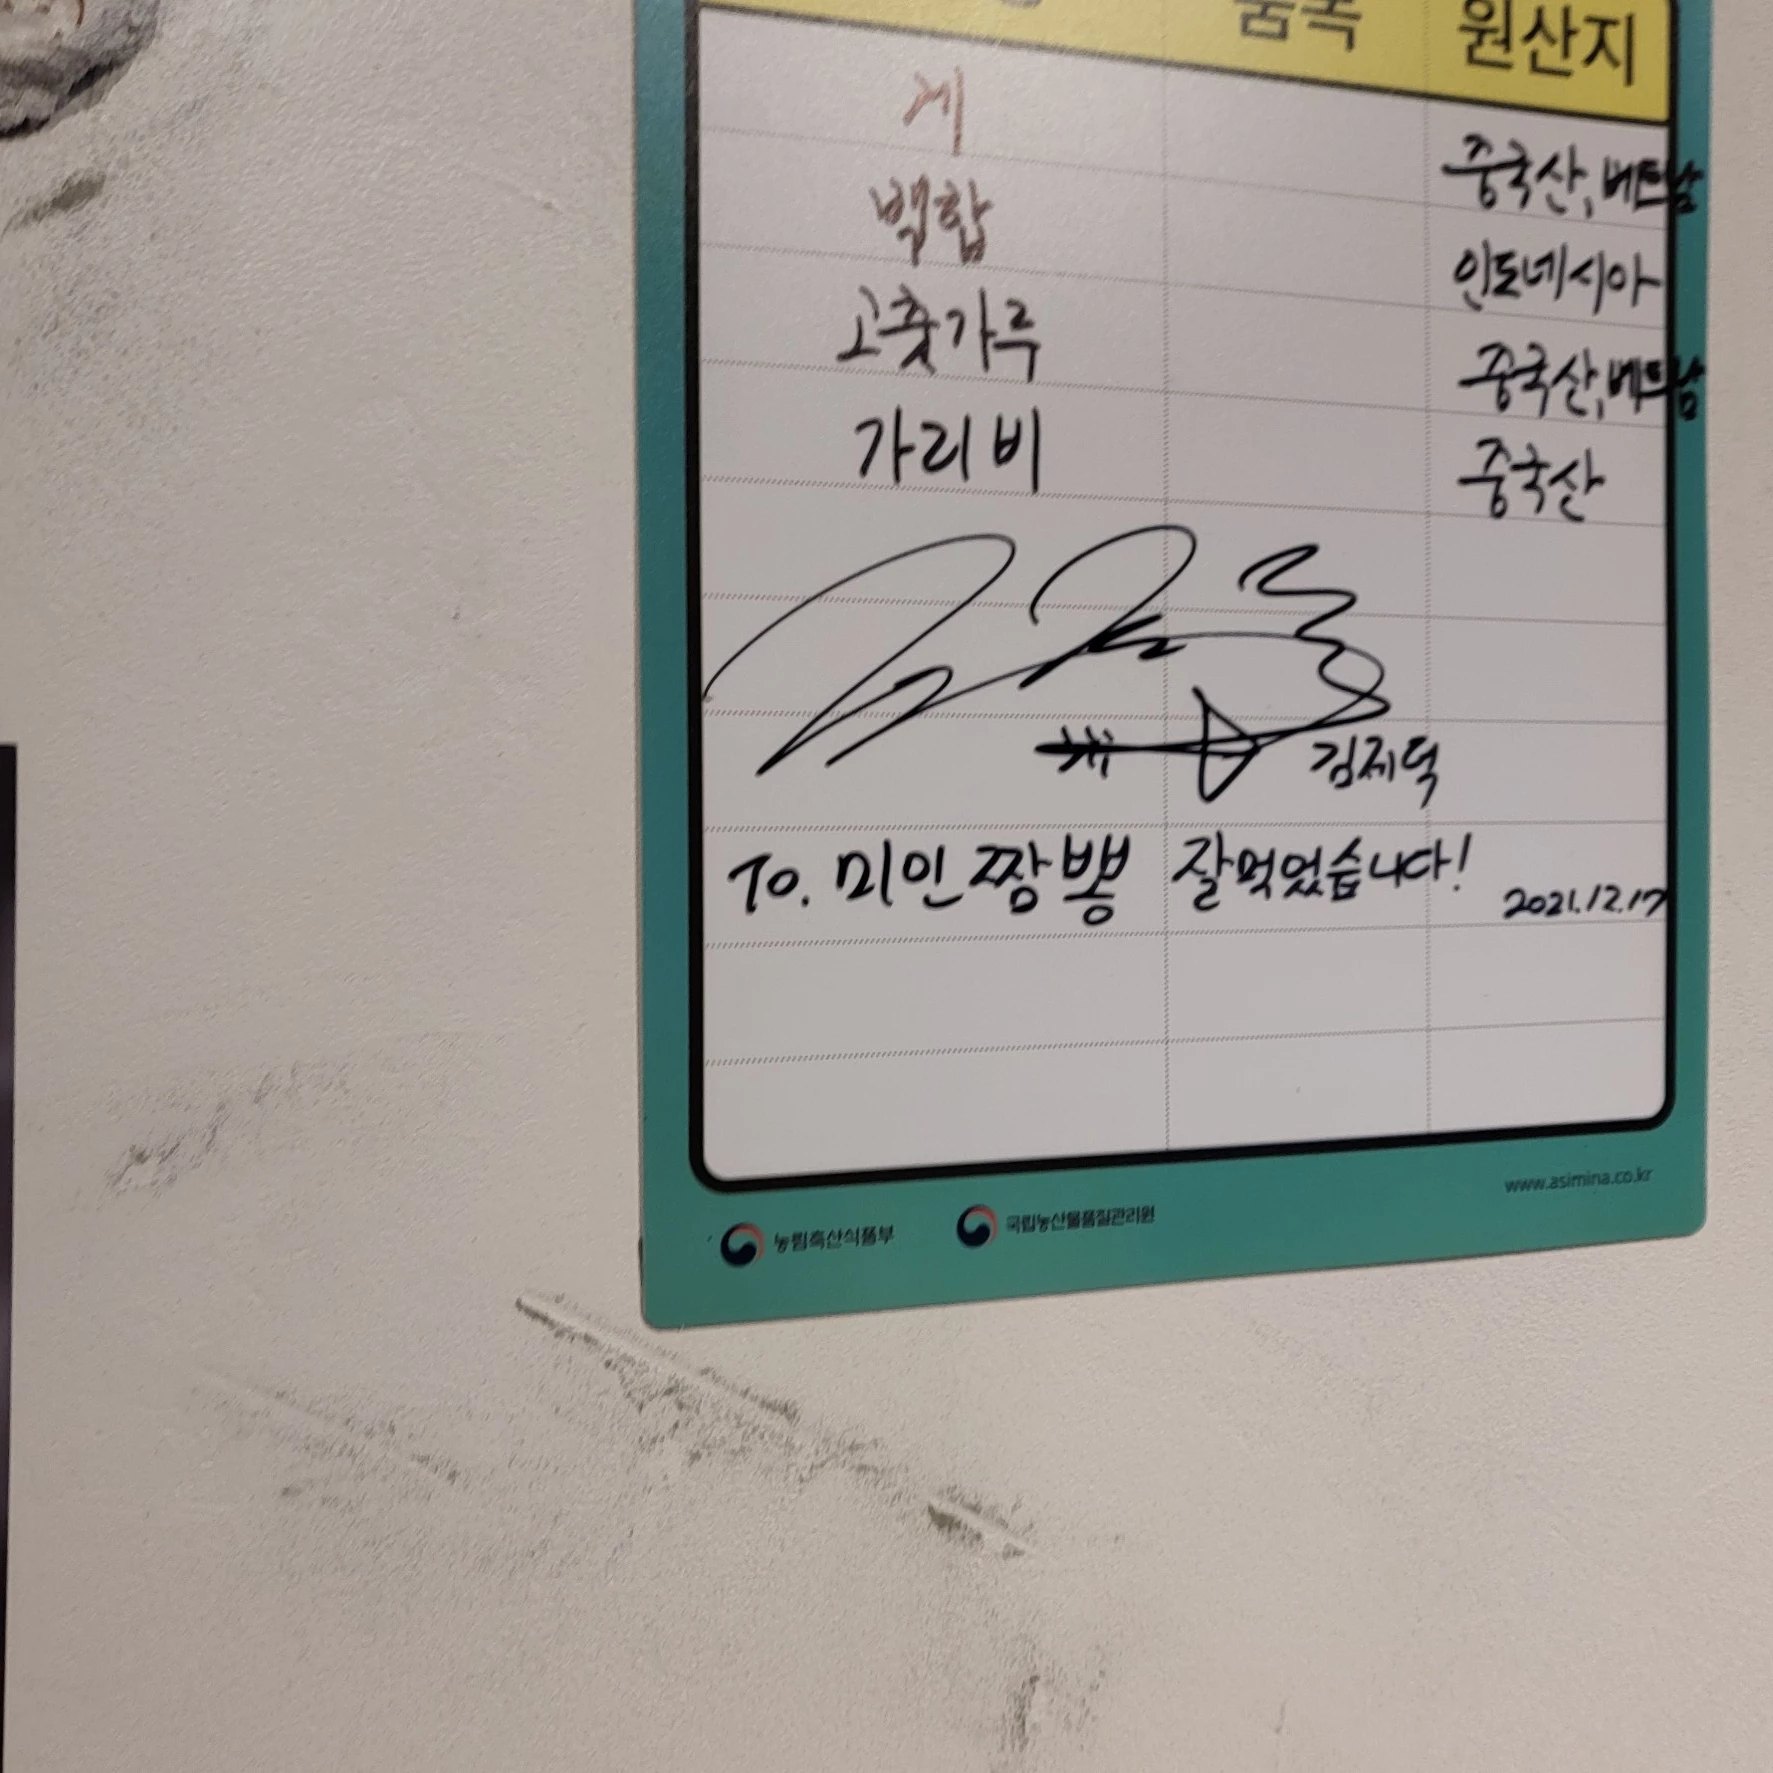 품목 원산지
게 중국산, 베트남
백합 인도네시아
고춧가루 중국산, 베트남
가리비 중국산
김제덕
To. 미인짬뽕 잘먹었습니다!
2021.12.17
www.asimina.co.kr
농림축산식품부 국립농산물품질관리원